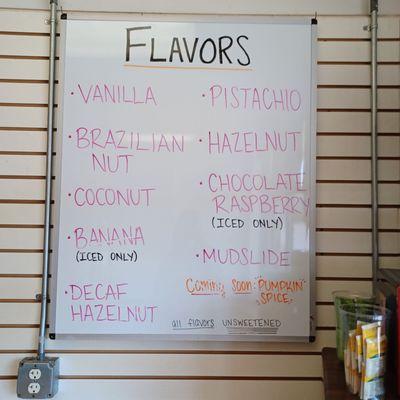 FLAVORS
• VANILLA
• BRAZILIAN
NUT
• COCONUT
• BANANA
(ICED ONLY)
• DECAF
HAZELNUT
• PISTACHIO
• HAZELNUT
• CHOCOLATE
RASPBERRY
(ICED ONLY)
• MUDSLIDE
Coming Soon: PUMPKIN
SPICE
all flavors UNSWEETENED